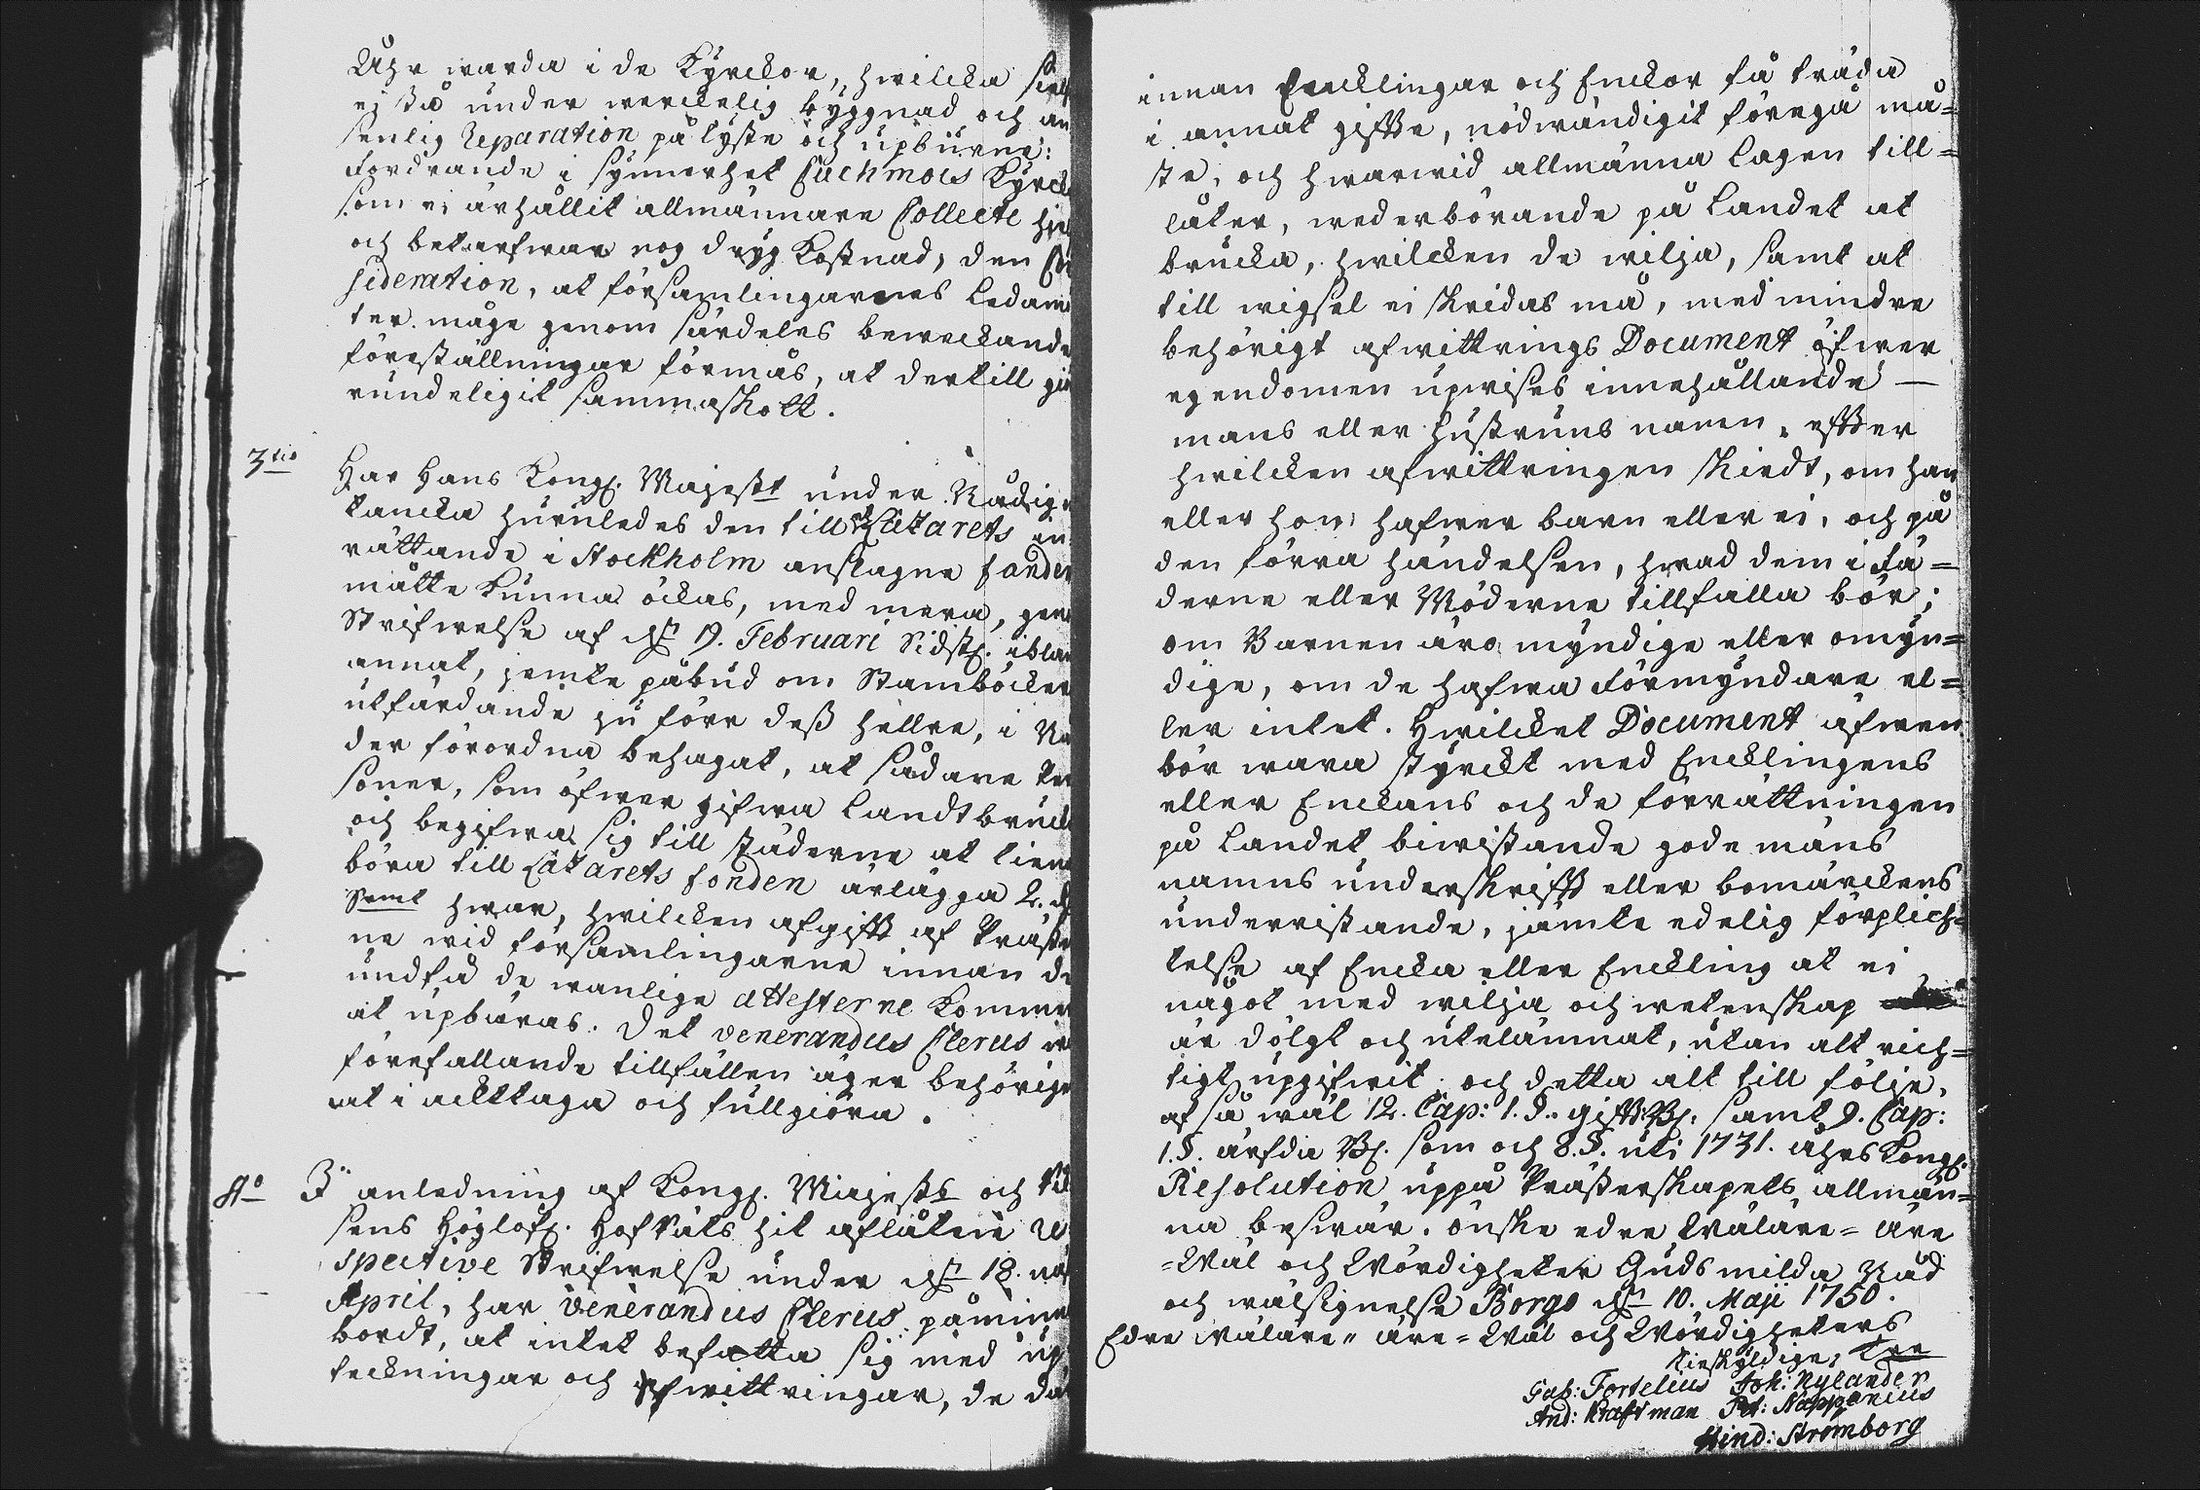 Åhr warda i de Kyrckor, hwilcka sielf
ej stå under werckelig byggnad och an
senlig Reparation pålyste och upburne:
fordrande i synnerhet Cuchmois Kyrck
som ei ärhållit allmännare Collecte hie
och betarfwar nog dryg Kostnad, den Con
sideration, at församlingarnes Ledam
ter måge genom särdeles beweckande
föreställningar förmås, at dertill giö
rundeligit sammaskott.
3tio Har Hans Kongl. Majestt under Nådig
tancka huruledes den till Lazarets in
rättande i Stockholm anslagne fonden
måtte kunna ökas, med mera, gen
Skrifwelse af d. 19. Februari Sidstl. ibla
annat, jemte påbud om Stamböcker
utfärdande ju förr dess hellre, i Nå
der förordna behagat, at sådane Per
soner, som öfwer gifwa Landtbruck
och begifwa sig till städerne at tiena
böra till Lazarets fonden ärlägga 2. d
Smt hwar, hwilcken afgifft af Präste
ne wid församlingarne innan de
undfå de wanlige attesterne Komme
at upbäras. Det Venerandus Clerus w
förefallande tillfällen äger behörige
at i ackttaga och fullgiöra.
4to I anledning af Kongl. Majests och Ri
sens Höglofl. Hofrätts hit aflåtne Re
spective Skrifwelse under d. 18. näst
April, har Venerandus Clerus påmin
bordt, at intet befatta sig med up
teckningar och afwittringar, de då
innan Encklingar och Enckor få träda
i annat giffte, nödwändigit föregå må=
ste, och hwarwid allmänna Lagen till=
låter, wederbörande på Landet at
brucka, hwilcken de wilja, samt at
till wigsel ei skridas må, med mindre
behörigt afwittrings Document öfwer
egendomen upwises innehållande —
mans eller Hustruns namn, effter
hwilcken afwittringen skiedt, om han
eller hon hafwer barn eller ei, och på
den förra händelsen, hwad dem i Fä=
derne eller Möderne tillfalla bör;
om Barnen äro myndige eller omyn=
dige, om de hafwa Förmyndare el=
ler intet. Hwilcket Document äfwen
bör wara styrckt med Encklingens
eller Enckans och de förrättningen
på Landet biwistande gode mäns
namns underskrifft eller bomärckens
underristande, jämte edelig förplich=
telse af Encka eller Enckling at ei
något med wilja och wetenskap
är dölgt och utelämnat, utan alt rich=
tigt upgifwit. och detta alt till följe,
af så wäl 12. Cap: 1. §. gifft: Bl. samt 9. Cap:
1. §. ärfda Bl. som och 8. §. uti 1731. åhrs Kongl.
Resolution uppå Prästerskapets allmän=
na beswär. önske edre Wäläre= äre
=Wäl och Wördigheter Guds milda Nåd
och wälsignelse Borgo d. 10. Maji 1750.
Edre wäläre= äre= Wäl och Wördigheters
tienskyldige,
Gab: Fortelius Joh: Nylander
And: Kraftman Pet: Näppenius
Hind: Strömborg